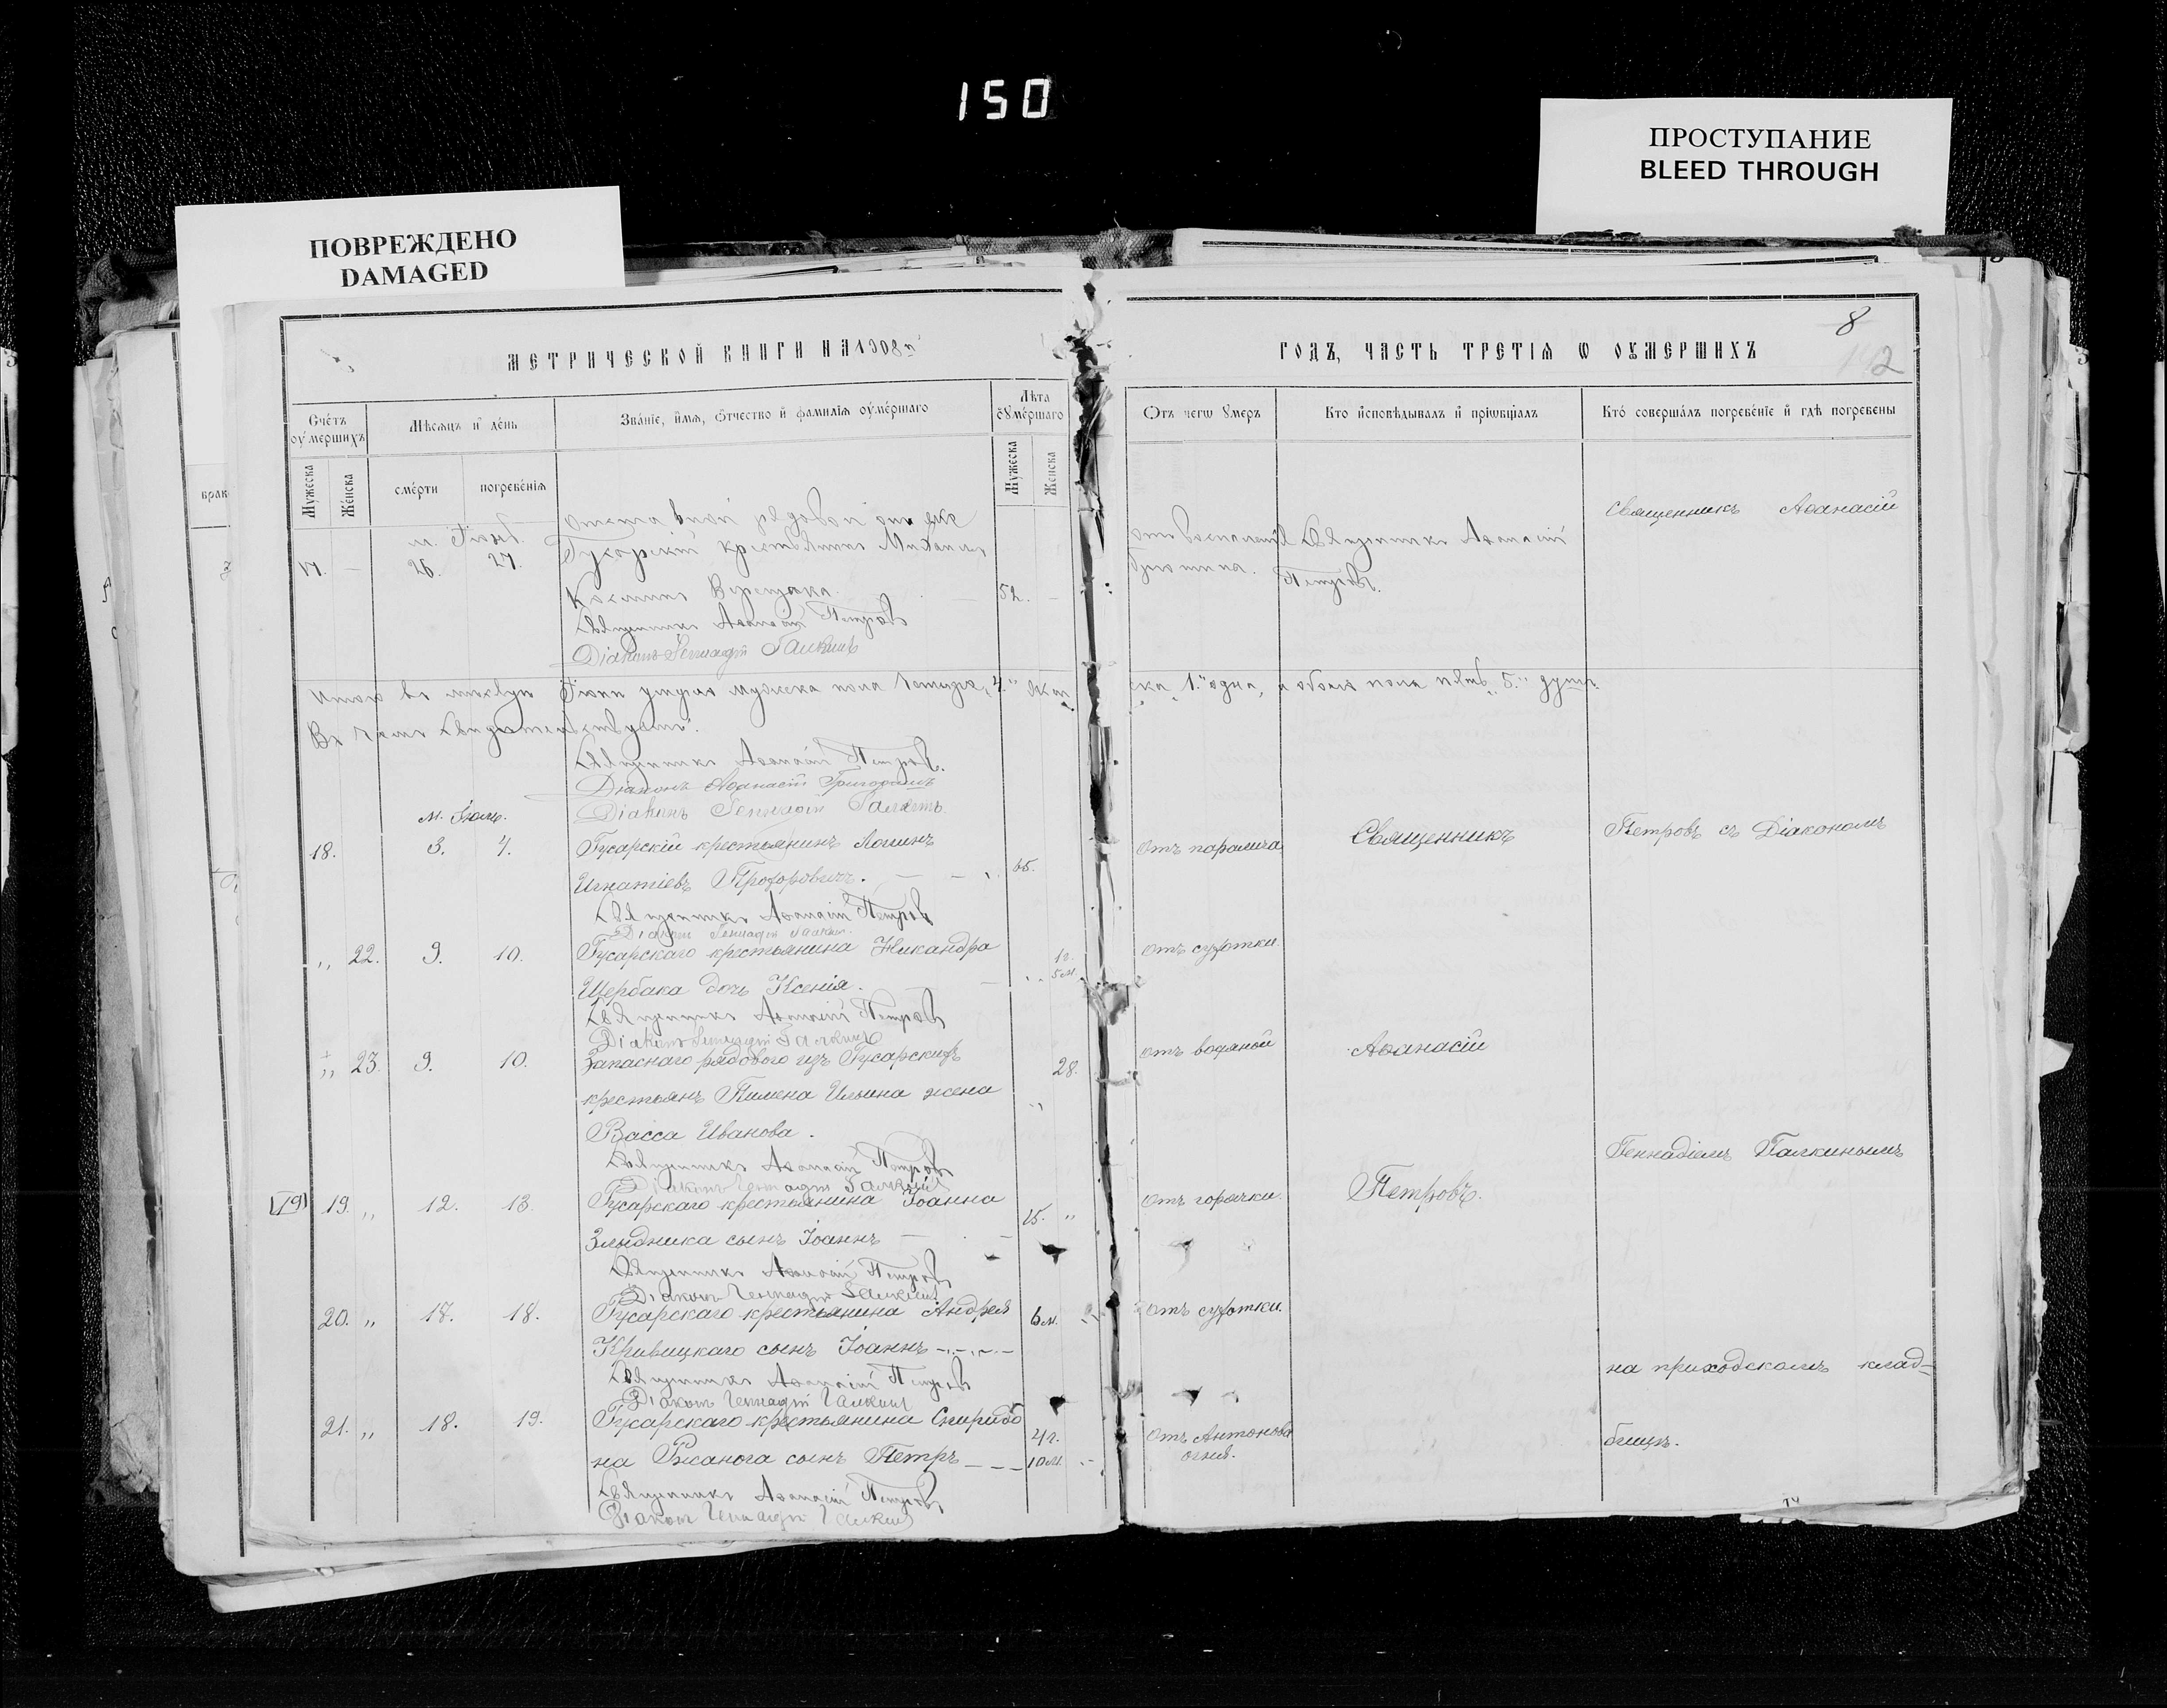 150
ПРОСТУПАНИЕ
BLEED THROUGH
ПОВРЕЖДЕНО
DAMAGED
8
МЕТРИЧЕСКОЙ КНИГИ НА 1908 й
ГОДЪ, ЧАСТЬ ТРЕТІѦ Ѡ ОУМЕРШИХЪ
2
Счетъ оумершихъ
Мѣсяцъ и день
Званіе, имя, отчество и фамилія оумершаго
Лѣта оумершаго
Отъ чегѡ умеръ
Кто исповѣдывалъ и пріѡбщалъ
Кто совершалъ погребеніе и гдѣ погребены
Мужеска
Женска
смерти
погребенія
Мужеска
Женска
брак
м. Іюнь.
17. — 26. 27.
Гусарскій крестьянинъ Михаилъ
Косминъ Верещака. 52.
отъ воспаленія
брюшина.
Священникъ Аѳанасій
Петровъ.
Священникъ Аѳанасій
Священникъ Аѳанасій Петровъ
Діаконъ Геннадій Галкинъ
Итого въ месяцѣ Іюнѣ умерло мужеска пола четыре „4." женска „1." одна, а обоего пола пять „5." душъ.
Въ чемъ свидѣтельствуемъ:
Священникъ Аѳанасій Петровъ.
Діаконъ Аѳанасій
Діаконъ Геннадій Галкинъ
м. Іюль.
18. 3. 4. Гусарскій крестьянинъ Логинъ
Игнатіевъ Прохоровичъ. 65.
отъ паралича
Священникъ
Петровъ съ Діакономъ
Священникъ Аѳанасій Петровъ
Діаконъ Геннадій Галкинъ
„ 22. 9. 10. Гусарскаго крестьянина Никандра
Щербака дочь Ксенія. 1г. 5м.
отъ сухотки.
Священникъ Аѳанасій Петровъ
Діаконъ Геннадій Галкинъ
„ 23. 9. 10. Запаснаго рядового изъ Гусарскихъ
крестьянъ Пимена Ильина жена
Васса Иванова. 28.
отъ водяной
Аѳанасій
Священникъ Аѳанасій Петровъ
Діаконъ Геннадій Галкинъ
Геннадіемъ Галкинымъ
19 19. „ 12. 13. Гусарскаго крестьянина Іоанна
Злыдника сынъ Іоаннъ — 15. „
отъ горячки.
Петровъ.
Священникъ Аѳанасій Петровъ
Діаконъ Геннадій Галкинъ
20. „ 17. 18. Гусарскаго крестьянина Андрея
Кривицкаго сынъ Іоаннъ 6м.
отъ сухотки.
Священникъ Аѳанасій Петровъ
Діаконъ Геннадій Галкинъ
на приходскомъ клад-
21. „ 18. 19. Гусарскаго крестьянина Спиридо
на Ржанога сынъ Петръ 4г. 10м.
отъ Антонова
огня.
бищѣ.
Священникъ Аѳанасій Петровъ
Діаконъ Геннадій Галкинъ